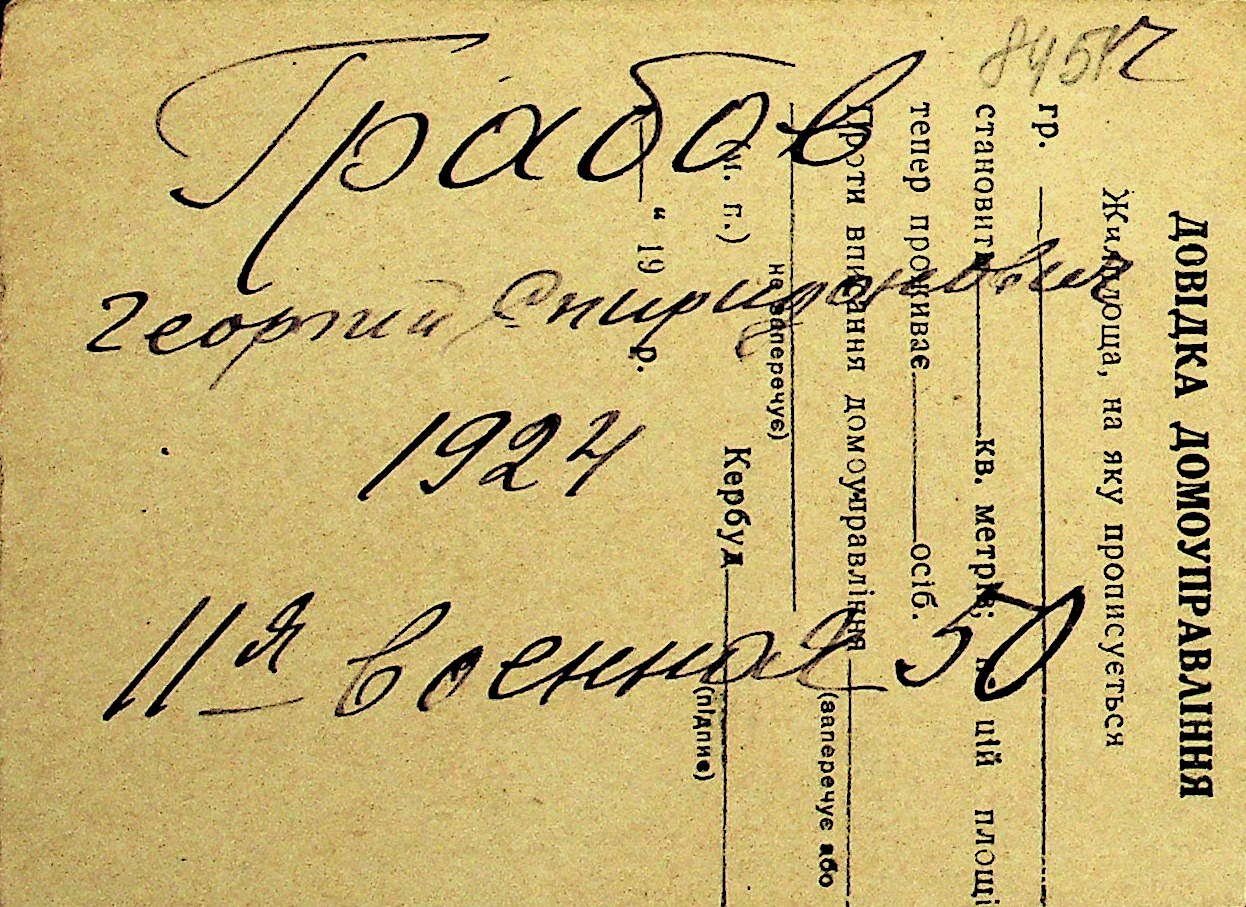 845 ч
Грабов
Георгий Спиридонович
1924
11я военная 50
ДОВІДКА ДОМОУПРАВЛІННЯ
Жилплоща, на яку прописується
гр.
становить кв. метрів; на цій площі
тепер проживає осіб.
Проти вписання домоуправління
(заперечує або
не заперечує)
Кербуд
(м. п.) (підпис)
“ 19 р.